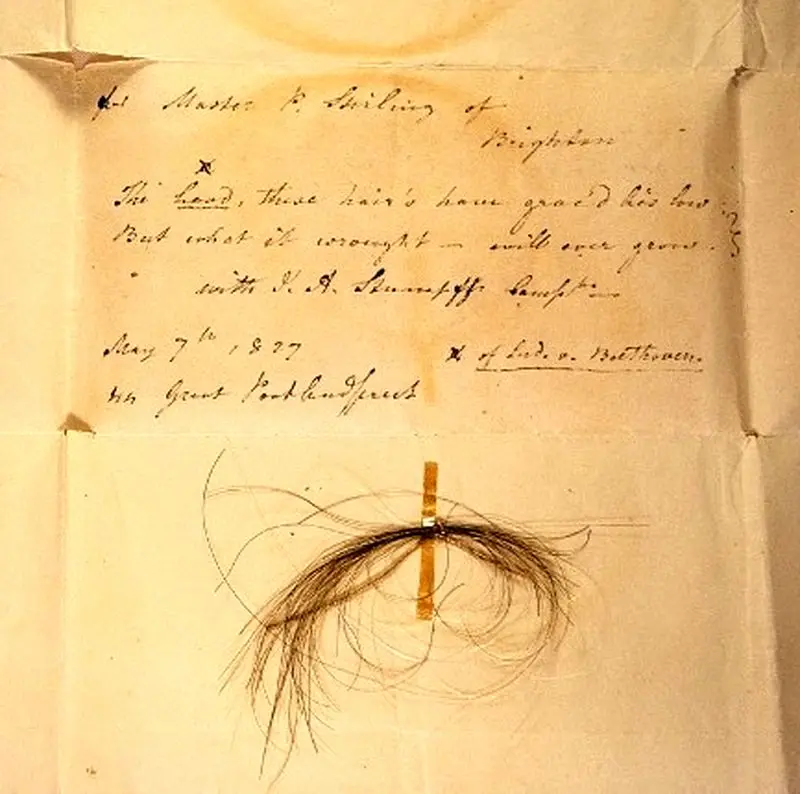 for Master P. Stirling of
Brighton
x
The head, these hair's have grac'd lies low
But what it wrought — will ever grow.
with J. A. Stumpff's Compts
May 7th 1827
Great Portlandstreet
x of Ludv. v. Beethoven.